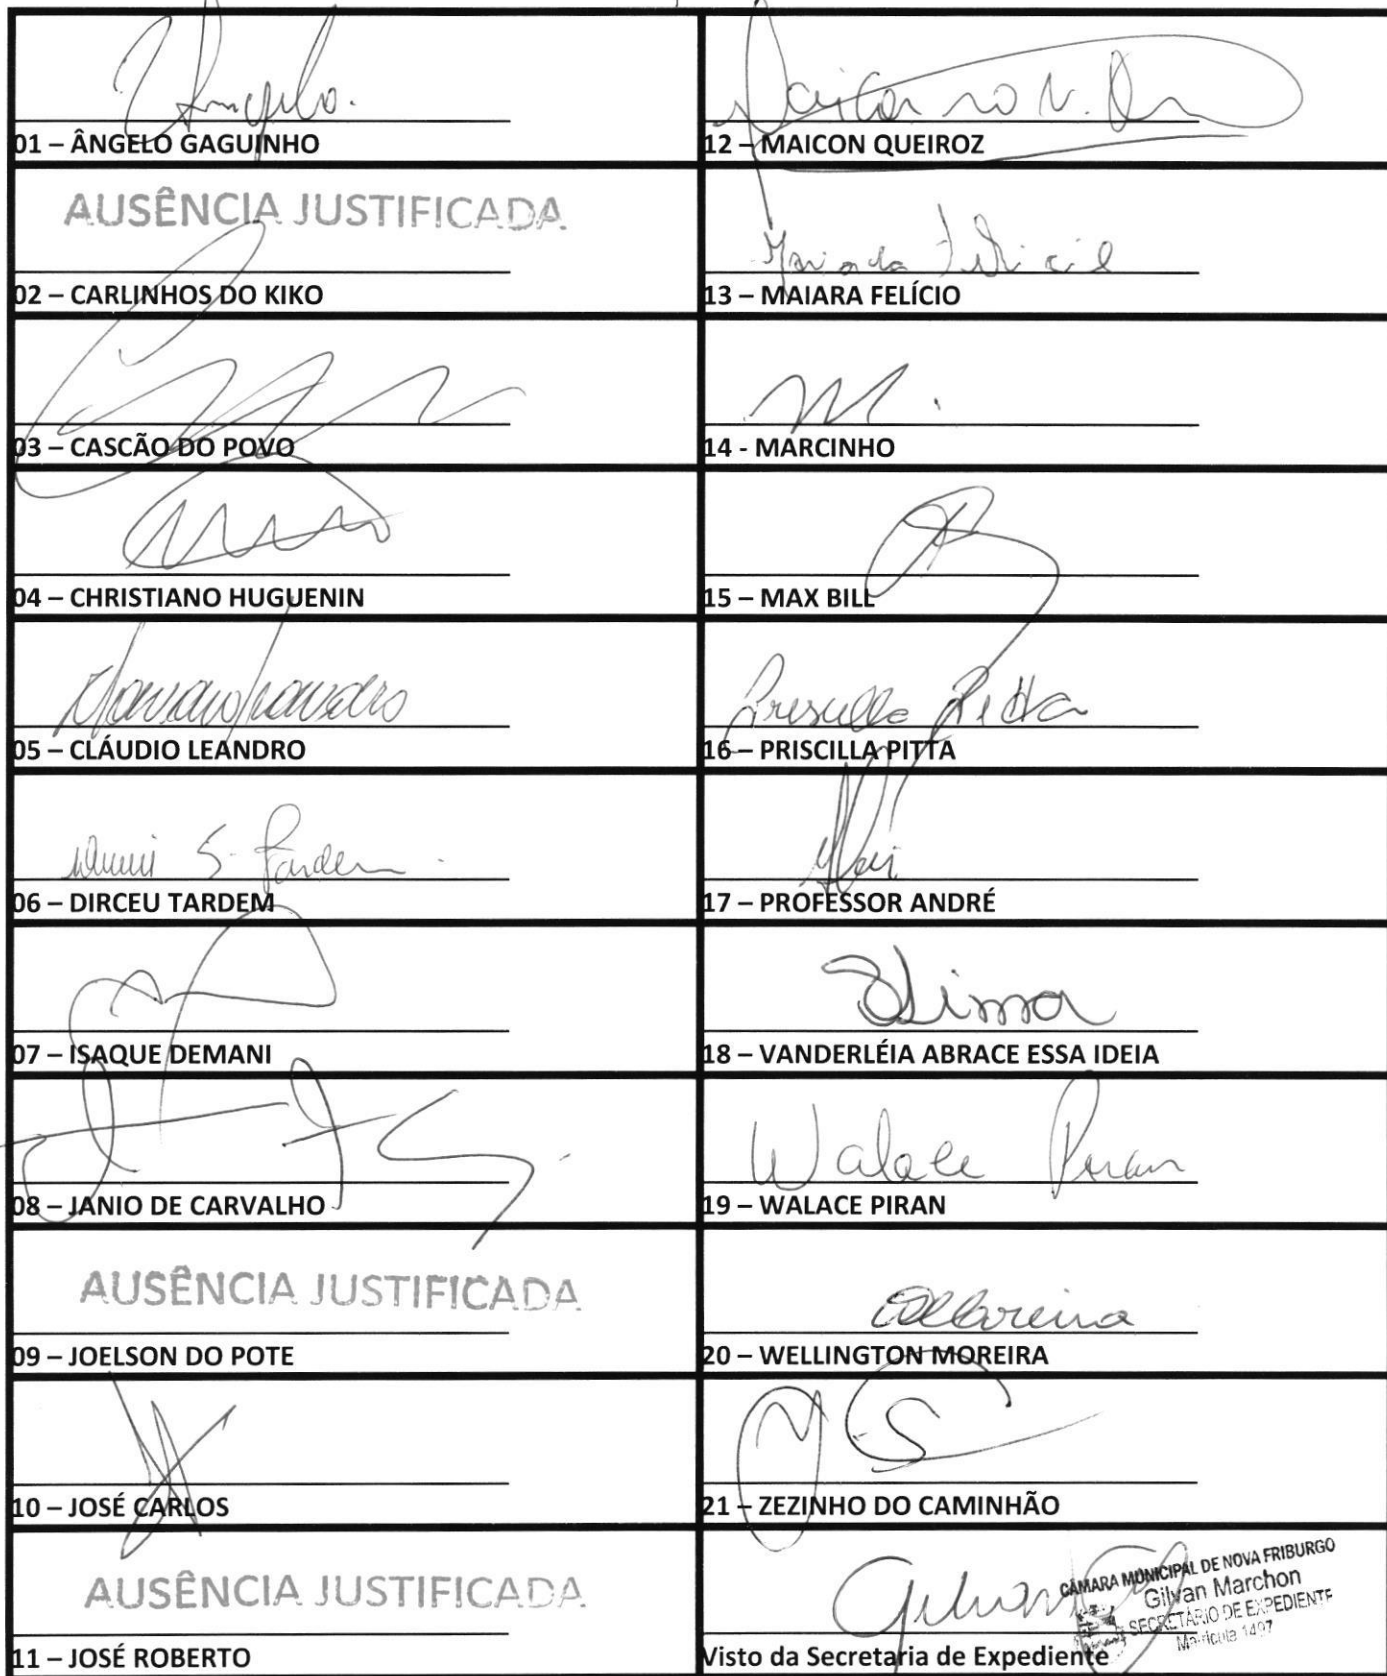 Angelo.
01 – ÂNGELO GAGUINHO
AUSÊNCIA JUSTIFICADA
02 – CARLINHOS DO KIKO
03 – CASCÃO DO POVO
04 – CHRISTIANO HUGUENIN
05 – CLÁUDIO LEANDRO
06 – DIRCEU TARDEM
07 – ISAQUE DEMANI
08 – JANIO DE CARVALHO
AUSÊNCIA JUSTIFICADA
09 – JOELSON DO POTE
10 – JOSÉ CARLOS
AUSÊNCIA JUSTIFICADA
11 – JOSÉ ROBERTO
12 – MAICON QUEIROZ
13 – MAIARA FELÍCIO
14 - MARCINHO
15 – MAX BILL
Priscilla Pitta
16 – PRISCILLA PITTA
17 – PROFESSOR ANDRÉ
18 – VANDERLÉIA ABRACE ESSA IDEIA
Walace Piran
19 – WALACE PIRAN
20 – WELLINGTON MOREIRA
21 – ZEZINHO DO CAMINHÃO
CÂMARA MUNICIPAL DE NOVA FRIBURGO
Gilvan Marchon
SECRETÁRIO DE EXPEDIENTE
Matrícula 1497
Visto da Secretaria de Expediente